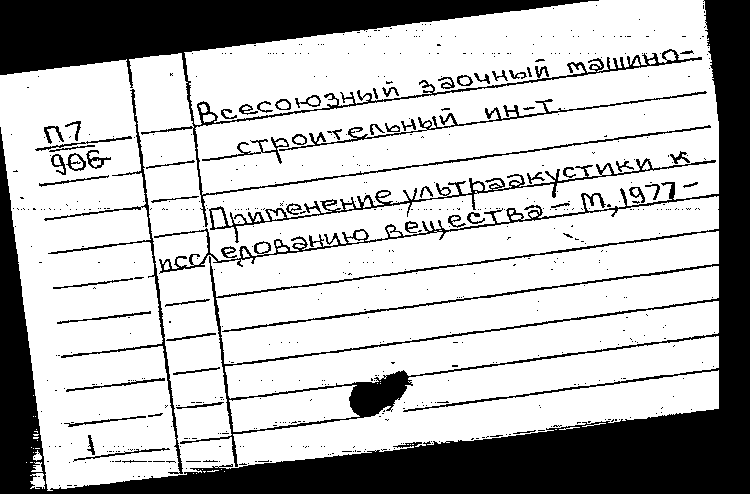 Всесоюзный заочный машино-
строительный ин-т.
П7
906
Применение ультраакустики к
исследованию вещества – М., 1977 –
1